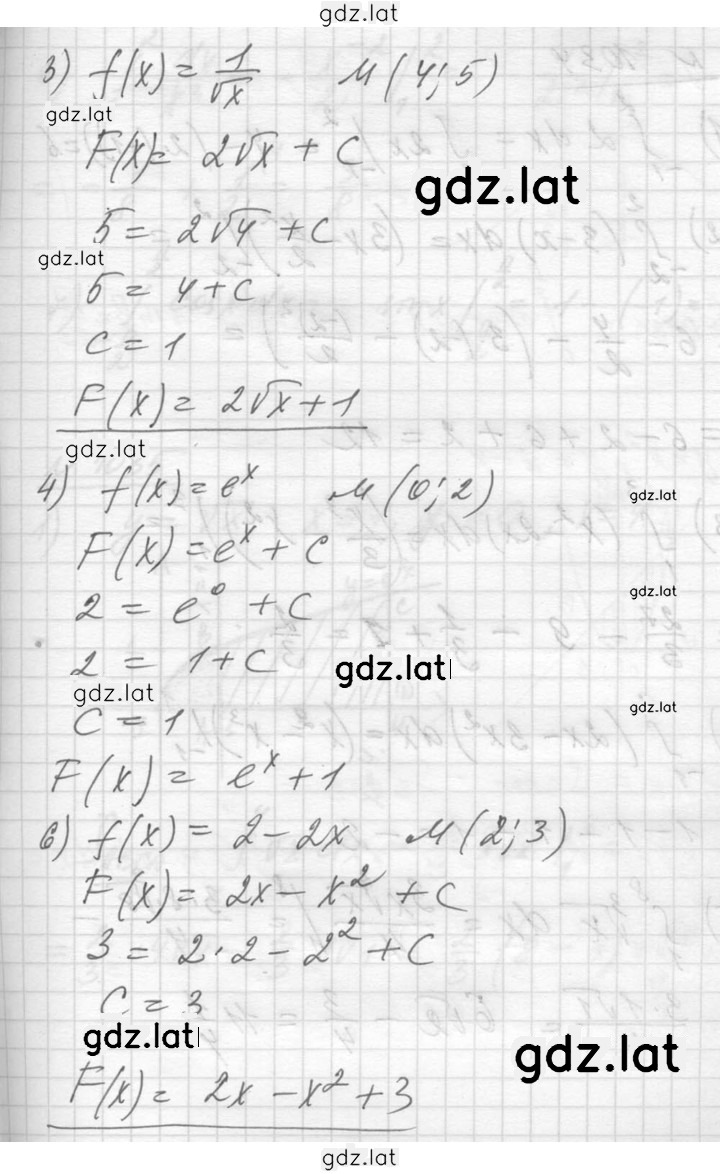 gdz.lat
3) f(x) = 1/√x M(4; 5)
gdz.lat
F(x) = 2√x + C
gdz.lat
5 = 2√4 + C
gdz.lat
5 = 4 + C
C = 1
F(x) = 2√x + 1
gdz.lat
4) f(x) = e^x M(0; 2)
gdz.lat
F(x) = e^x + C
gdz.lat
2 = e^0 + C
2 = 1 + C
gdz.lat
gdz.lat
gdz.lat
C = 1
F(x) = e^x + 1
6) f(x) = 2 - 2x M(2; 3)
F(x) = 2x - x^2 + C
3 = 2·2 - 2^2 + C
C = 3
gdz.lat
gdz.lat
F(x) = 2x - x^2 + 3
gdz.lat